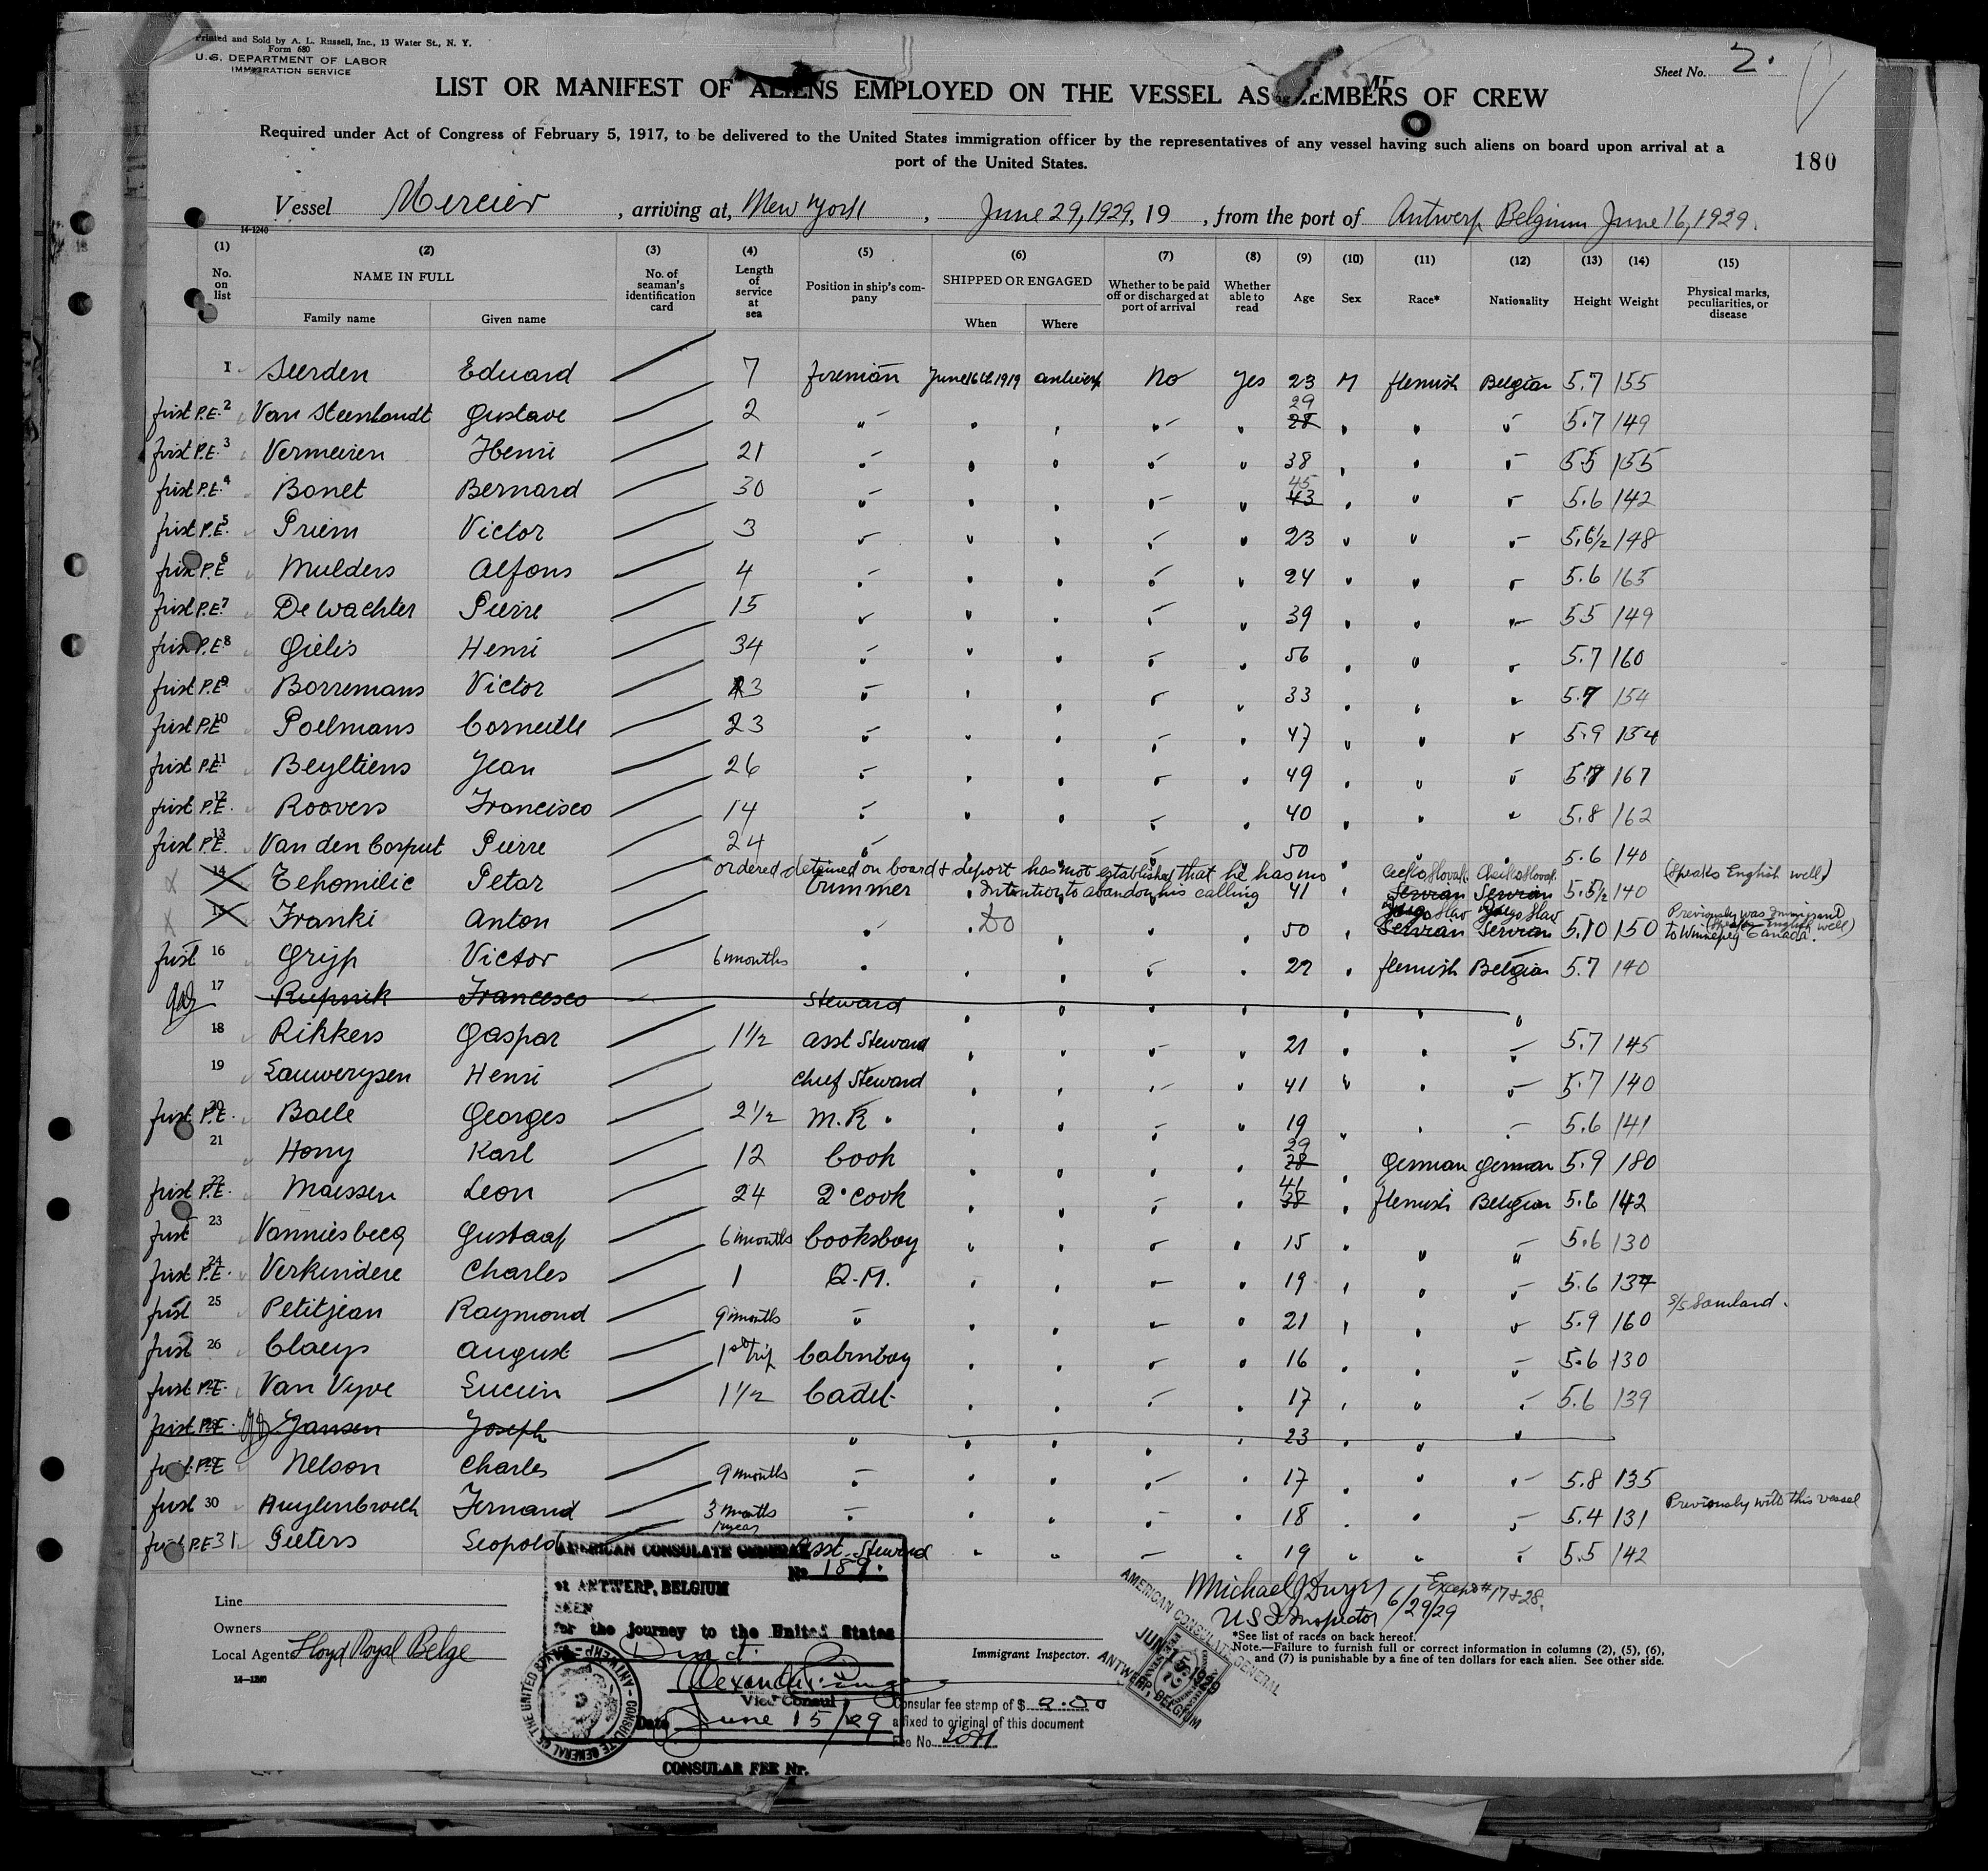 Printed and Sold by A. L. Russell, Inc., 13 Water St., N. Y.
Form 680
U. S. DEPARTMENT OF LABOR
IMMIGRATION SERVICE
Sheet No. 2.
LIST OR MANIFEST OF ALIENS EMPLOYED ON THE VESSEL AS MEMBERS OF CREW
Required under Act of Congress of February 5, 1917, to be delivered to the United States immigration officer by the representatives of any vessel having such aliens on board upon arrival at a
port of the United States.
180
Vessel Mercier, arriving at, New York, June 29, 1929, 19 , from the port of Antwerp Belgium June 16, 1929.
14-1240
(1) (2) (3) (4) (5) (6) (7) (8) (9) (10) (11) (12) (13) (14) (15)
No. on list NAME IN FULL Family name Given name No. of seaman's identification card Length of service at sea Position in ship's company SHIPPED OR ENGAGED When Where Whether to be paid off or discharged at port of arrival Whether able to read Age Sex Race* Nationality Height Weight Physical marks, peculiarities, or disease
1 Seerden Eduard 7 fireman June 16th 1919 antwerp No Yes 23 M flemish Belgian 5.7 155
first P.E. 2 Van Steenlandt Gustave 2 " 29 28 5.7 149
first P.E. 3 Vermeiren Henri 21 " 38 5.5 155
first P.E. 4 Bonet Bernard 30 " 45 43 5.6 142
first P.E. 5 Priem Victor 3 " 23 5.6½ 148
first P.E. 6 Mulders Alfons 4 " 24 5.6 165
first P.E. 7 De Wachter Pierre 15 " 39 5.5 149
first P.E. 8 Gielis Henri 34 " 56 5.7 160
first P.E. 9 Borremans Victor 13 " 33 5.7 154
first P.E. 10 Poelmans Corneille 23 " 47 5.9 154
first P.E. 11 Beyltiens Jean 26 " 49 5.7 167
first P.E. 12 Roovers Francisco 14 " 40 5.8 162
first P.E. 13 Van den Corput Pierre 24 " 50 5.6 140
ordered detained on board & deport has not established that he has no
x 14 Tehomilic Petar trimmer intention to abandon his calling 41 CzekoSlovak. CheckoSlovak. Servian Servian 5.5½ 140 (Speaks English well)
x 15 Franki Anton " Do 50 Jugo Slav Jugo Slav Servian Servian 5.10 150 Previously was Immigrant (Speaks English well) to Winnipeg Canada.
first 16 Grijp Victor 6 months " 22 flemish Belgian 5.7 140
17 Rupnik Francesco Steward
18 Rikkers Gaspar 1½ asst Steward 21 5.7 145
19 Lauwerysen Henri chief Steward 41 5.7 140
first P.E. 20 Baele Georges 2½ M.R. 19 5.6 141
21 Hony Karl 12 Cook 29 28 German German 5.9 180
first P.E. 22 Maessen Leon 24 2° cook 41 38 flemish Belgian 5.6 142
first 23 Vanniesbecq Gustaaf 6 months Cooksboy 15 5.6 130
first P.E. 24 Verkindere Charles 1 Q.M. 19 5.6 137
first 25 Petitjean Raymond 9 months " 21 5.9 160 S/S Samland.
first 26 Claeys August 1st trip Cabinboy 16 5.6 130
first P.E. 27 Van Vyve Lucien 1½ Cadet 17 5.6 139
first P.E. 28 Jansen Joseph " 23
first P.E. 29 Nelson Charles 9 months " 17 5.8 135
first 30 Fernand 3 months " 18 5.4 131 Previously with this vessel
first P.E. 31 Pieters Leopold 1 year asst. Steward 19 5.5 142
AMERICAN CONSULATE GENERAL
No 189.
at ANTWERP, BELGIUM
SEEN
for the journey to the United States
Vice Consul
Date June 15/29
CONSULAR FEE Nr.
Line
Owners
Local Agents Lloyd Royal Belge
14-1240
Michael J Dwyer 6/29/29 Except # 17 + 28.
US I Inspector
Immigrant Inspector.
*See list of races on back hereof.
Note.—Failure to furnish full or correct information in columns (2), (5), (6),
and (7) is punishable by a fine of ten dollars for each alien. See other side.
Consular fee stamp of $ 2.00
affixed to original of this document
Fee No.
AMERICAN CONSULATE GENERAL
JUN 15 1929
ANTWERP, BELGIUM